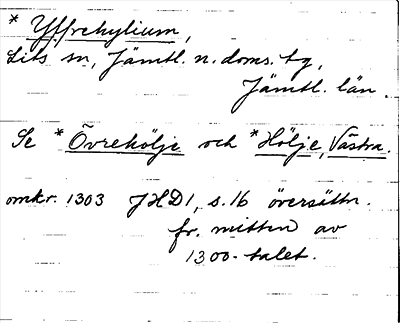 * Yffrehylium,
Lits sn, Jämtl. n. doms. tg,
Jämtl. län.
Se * Övrehölje och * Hölje, Västra.
omkr. 1303 JHD1, s. 16 översättn.
fr. mitten av
1300-talet.